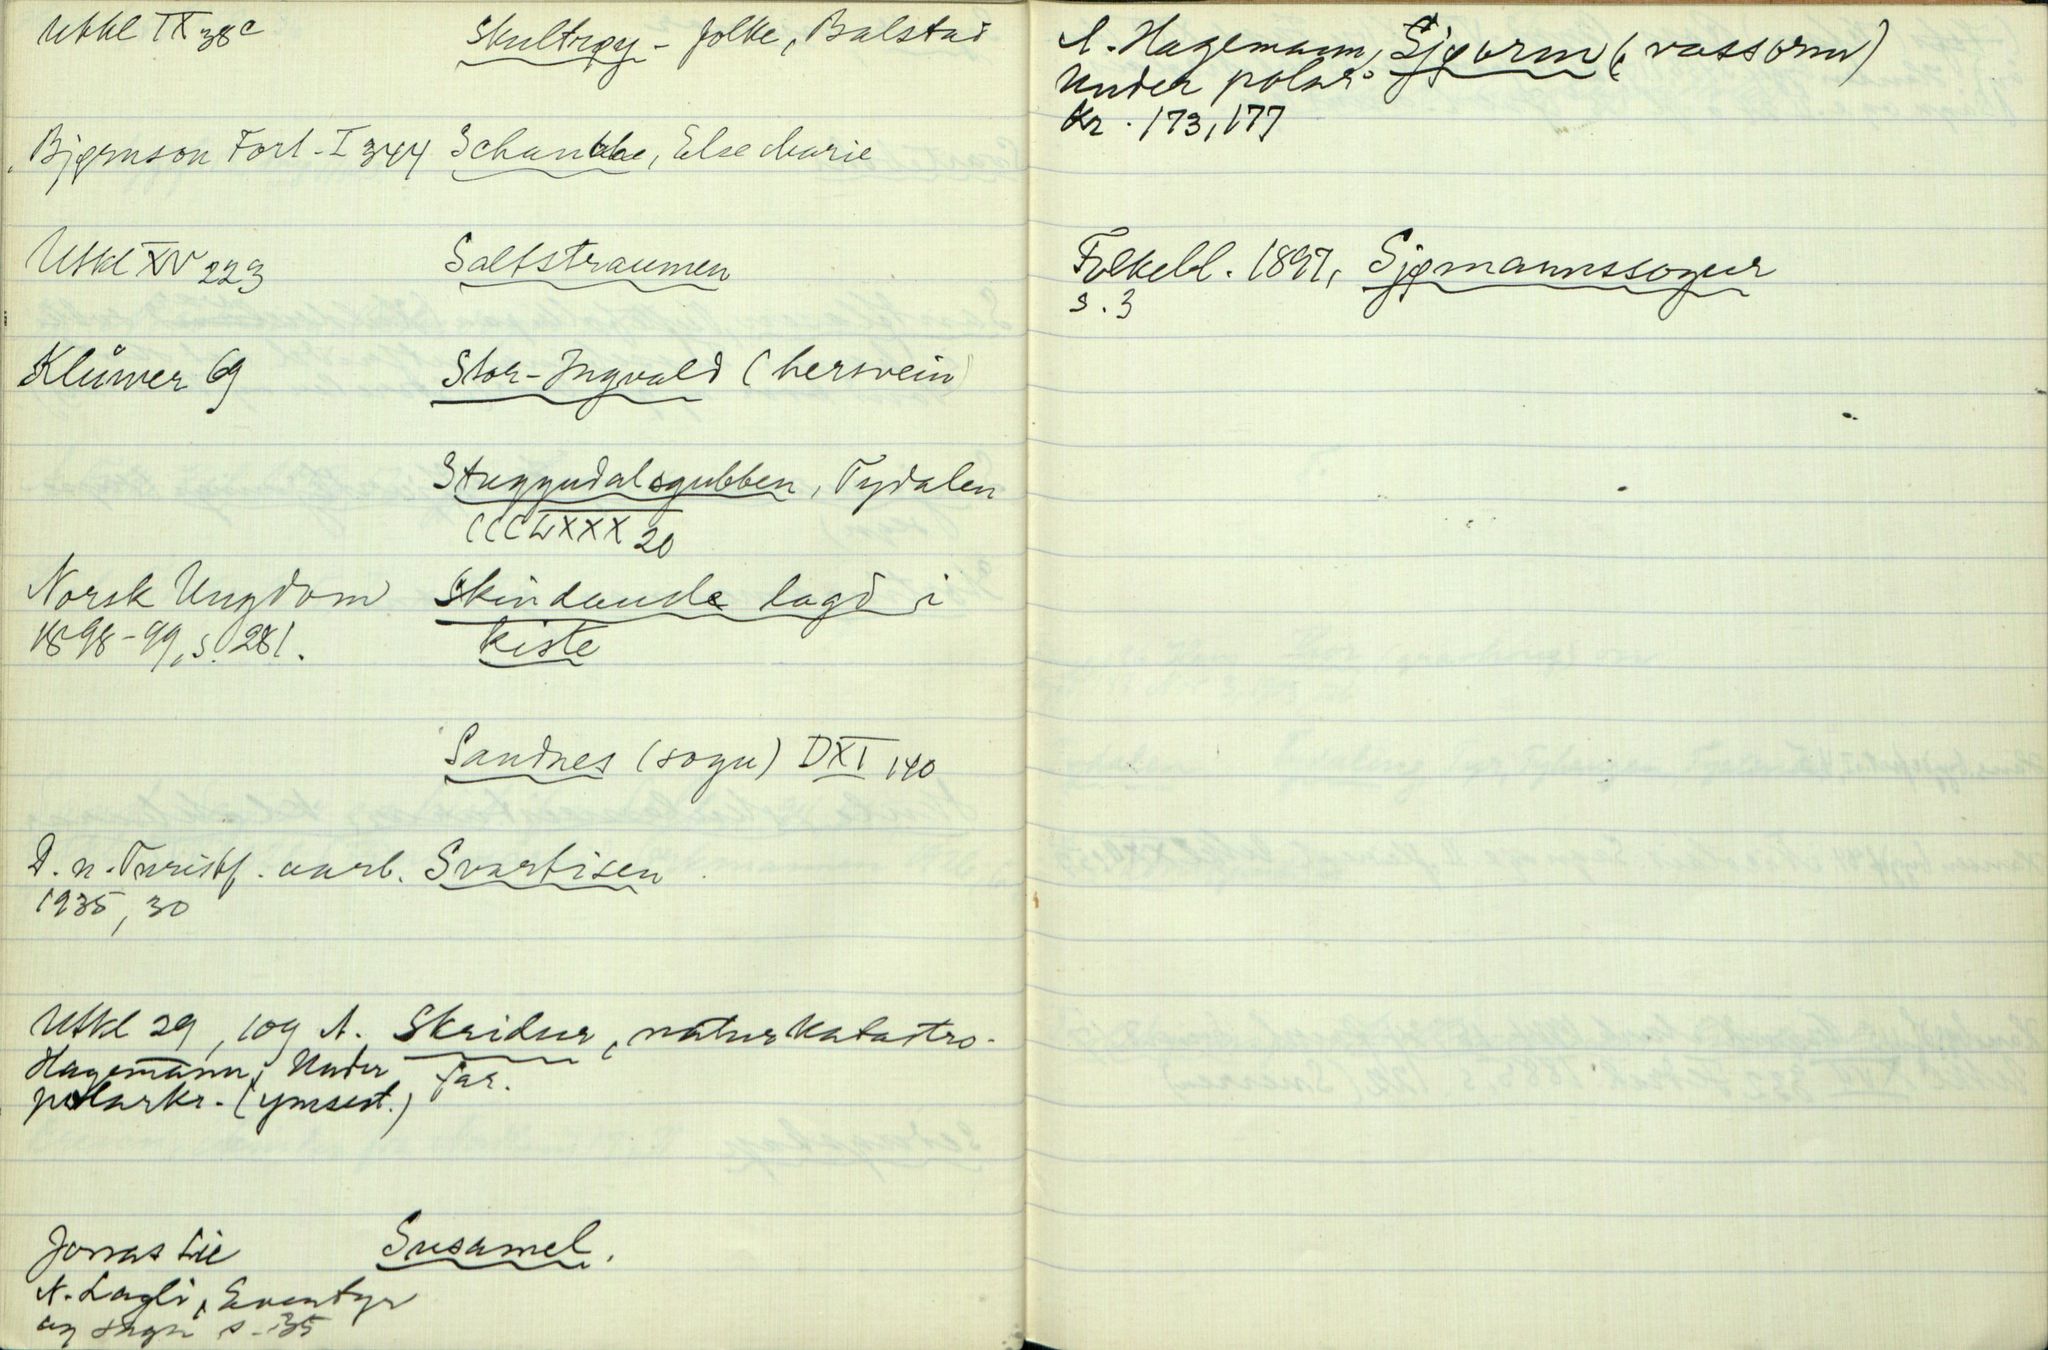 Utkl IX 38c Skultrøy - folke, Balstad
Bjørnson Fort. I 344 Schanche, Else Marie
Utkl XV 223 Saltstraumen
Klüwer 69 Stor-Ingvald (hersvein)
Stuggudalsgubben, Tydalen
CCCLXXX 20
Norsk Ungdom Skindaude lagd i
1898-99, s. 281. kiste
Sandnes (sogn) DXI 140
D. n. Turistf. aarb. Svartisen
1935, 30
Utkl 29, 109 A. Skridur, naturkatastro-
Hagemann, Under far.
polarkr. (ymsest.)
Jonas Lie Susamel.
N. Lagli, Eventyr
og sogn s. 35
A. Hagemann, Sjøorm (, vassorm)
Under polar-
kr. 173, 177
Folkebl. 1897, Sjømannssogur
s. 3